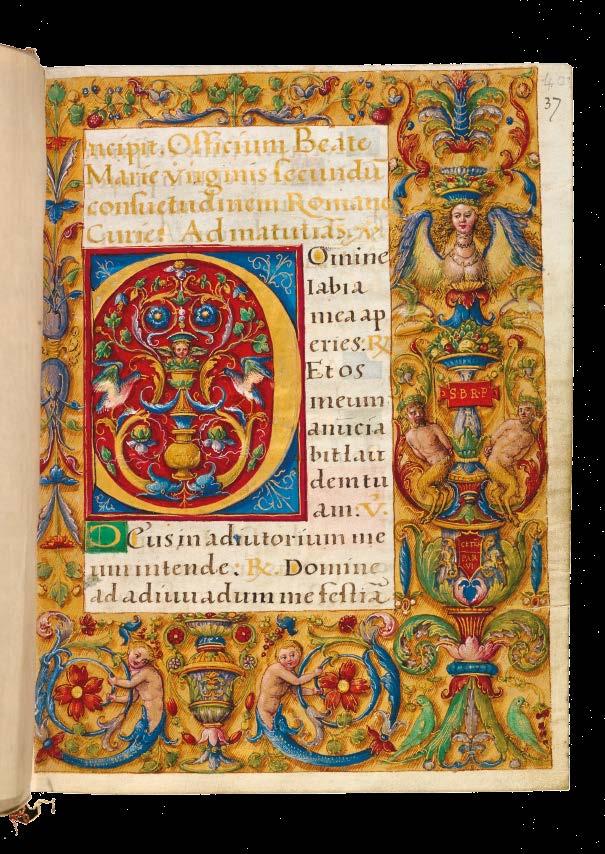 40
37
ncipit. Officium Beate
Marie virginis secundū
consuetudinem Romane
Curie. Ad matutinas.
Domine
labia
mea ap
eries: R.
Et os
meum
anūcia
bit laū
dem tu
am: V.
Deus in adiutorium me
um intende: R. Domine
ad adiuuādum me festiā
S·B·R·P